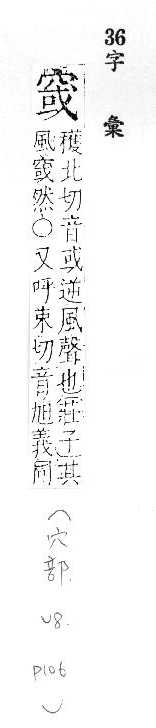 36 字彙
窢
穫北切音或逆風聲也莊子其
風窢然○又呼束切音旭義同
(穴部. u8. P106)